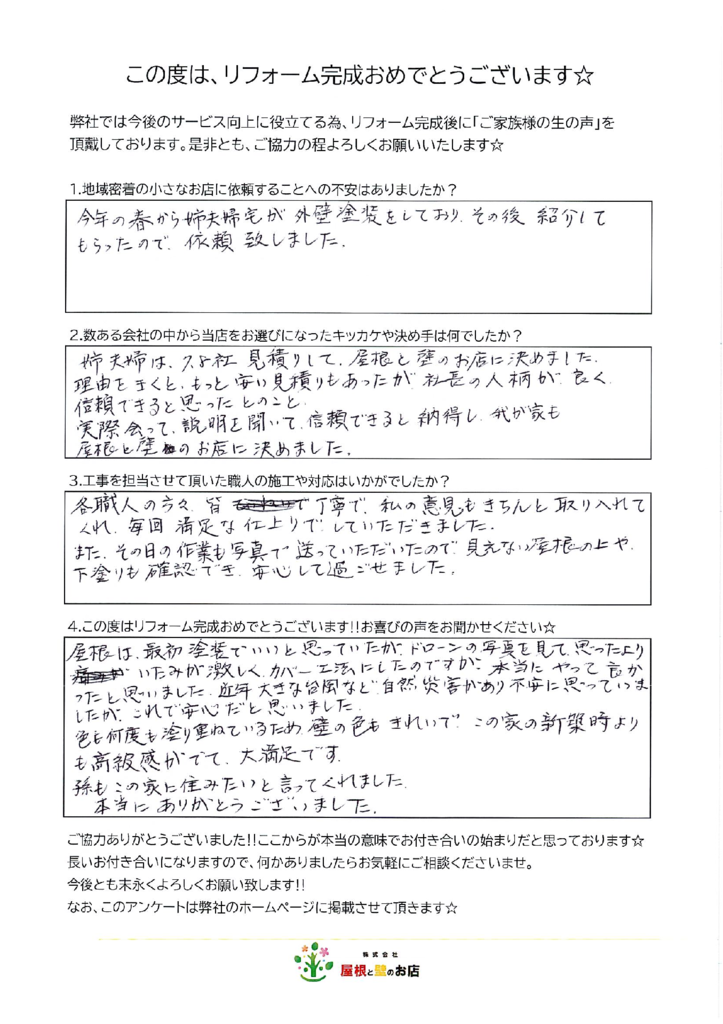 この度は、リフォーム完成おめでとうございます☆
弊社では今後のサービス向上に役立てる為、リフォーム完成後に「ご家族様の生の声」を
頂戴しております。是非とも、ご協力の程よろしくお願いいたします☆
1.地域密着の小さなお店に依頼することへの不安はありましたか？
今年の春から姉夫婦宅が外壁塗装をしており、その後 紹介して
もらったので、依頼 致しました。
2.数ある会社の中から当店をお選びになったキッカケや決め手は何でしたか？
姉夫婦は、7.8社 見積りして、屋根と壁のお店に決めました。
理由をきくと、もっと安い見積りもあったが、社長の人柄が良く、
信頼できると思ったとのこと。
実際会って、説明を聞いて、信頼できると納得し、我が家も
屋根と壁のお店に決めました。
3.工事を担当させて頂いた職人の施工や対応はいかがでしたか？
各職人の方々、皆 丁寧で、私の意見もきちんと取り入れて
くれ、毎回 満足な仕上りでしていただきました。
また、その日の作業も写真で送っていただいたので、見えない屋根の上や、
下塗りも確認でき、安心して過ごせました。
4.この度はリフォーム完成おめでとうございます!!お喜びの声をお聞かせください☆
屋根は、最初塗装でいいと思っていたが、ドローンの写真を見て、思ったより
いたみが激しく、カバー工法にしたのですが、本当にやって良か
ったと思いました。近年大きな台風など、自然災害があり不安に思っていま
したが、これで安心だと思いました。
色も何度も塗り重ねているため、壁の色もきれいで、この家の新築時より
も高級感がでて、大満足です。
孫もこの家に住みたいと言ってくれました。
本当にありがとうございました。
ご協力ありがとうございました!!ここからが本当の意味でお付き合いの始まりだと思っております☆
長いお付き合いになりますので、何かありましたらお気軽にご相談くださいませ。
今後とも末永くよろしくお願い致します!!
なお、このアンケートは弊社のホームページに掲載させて頂きます☆
株式会社
屋根と壁のお店